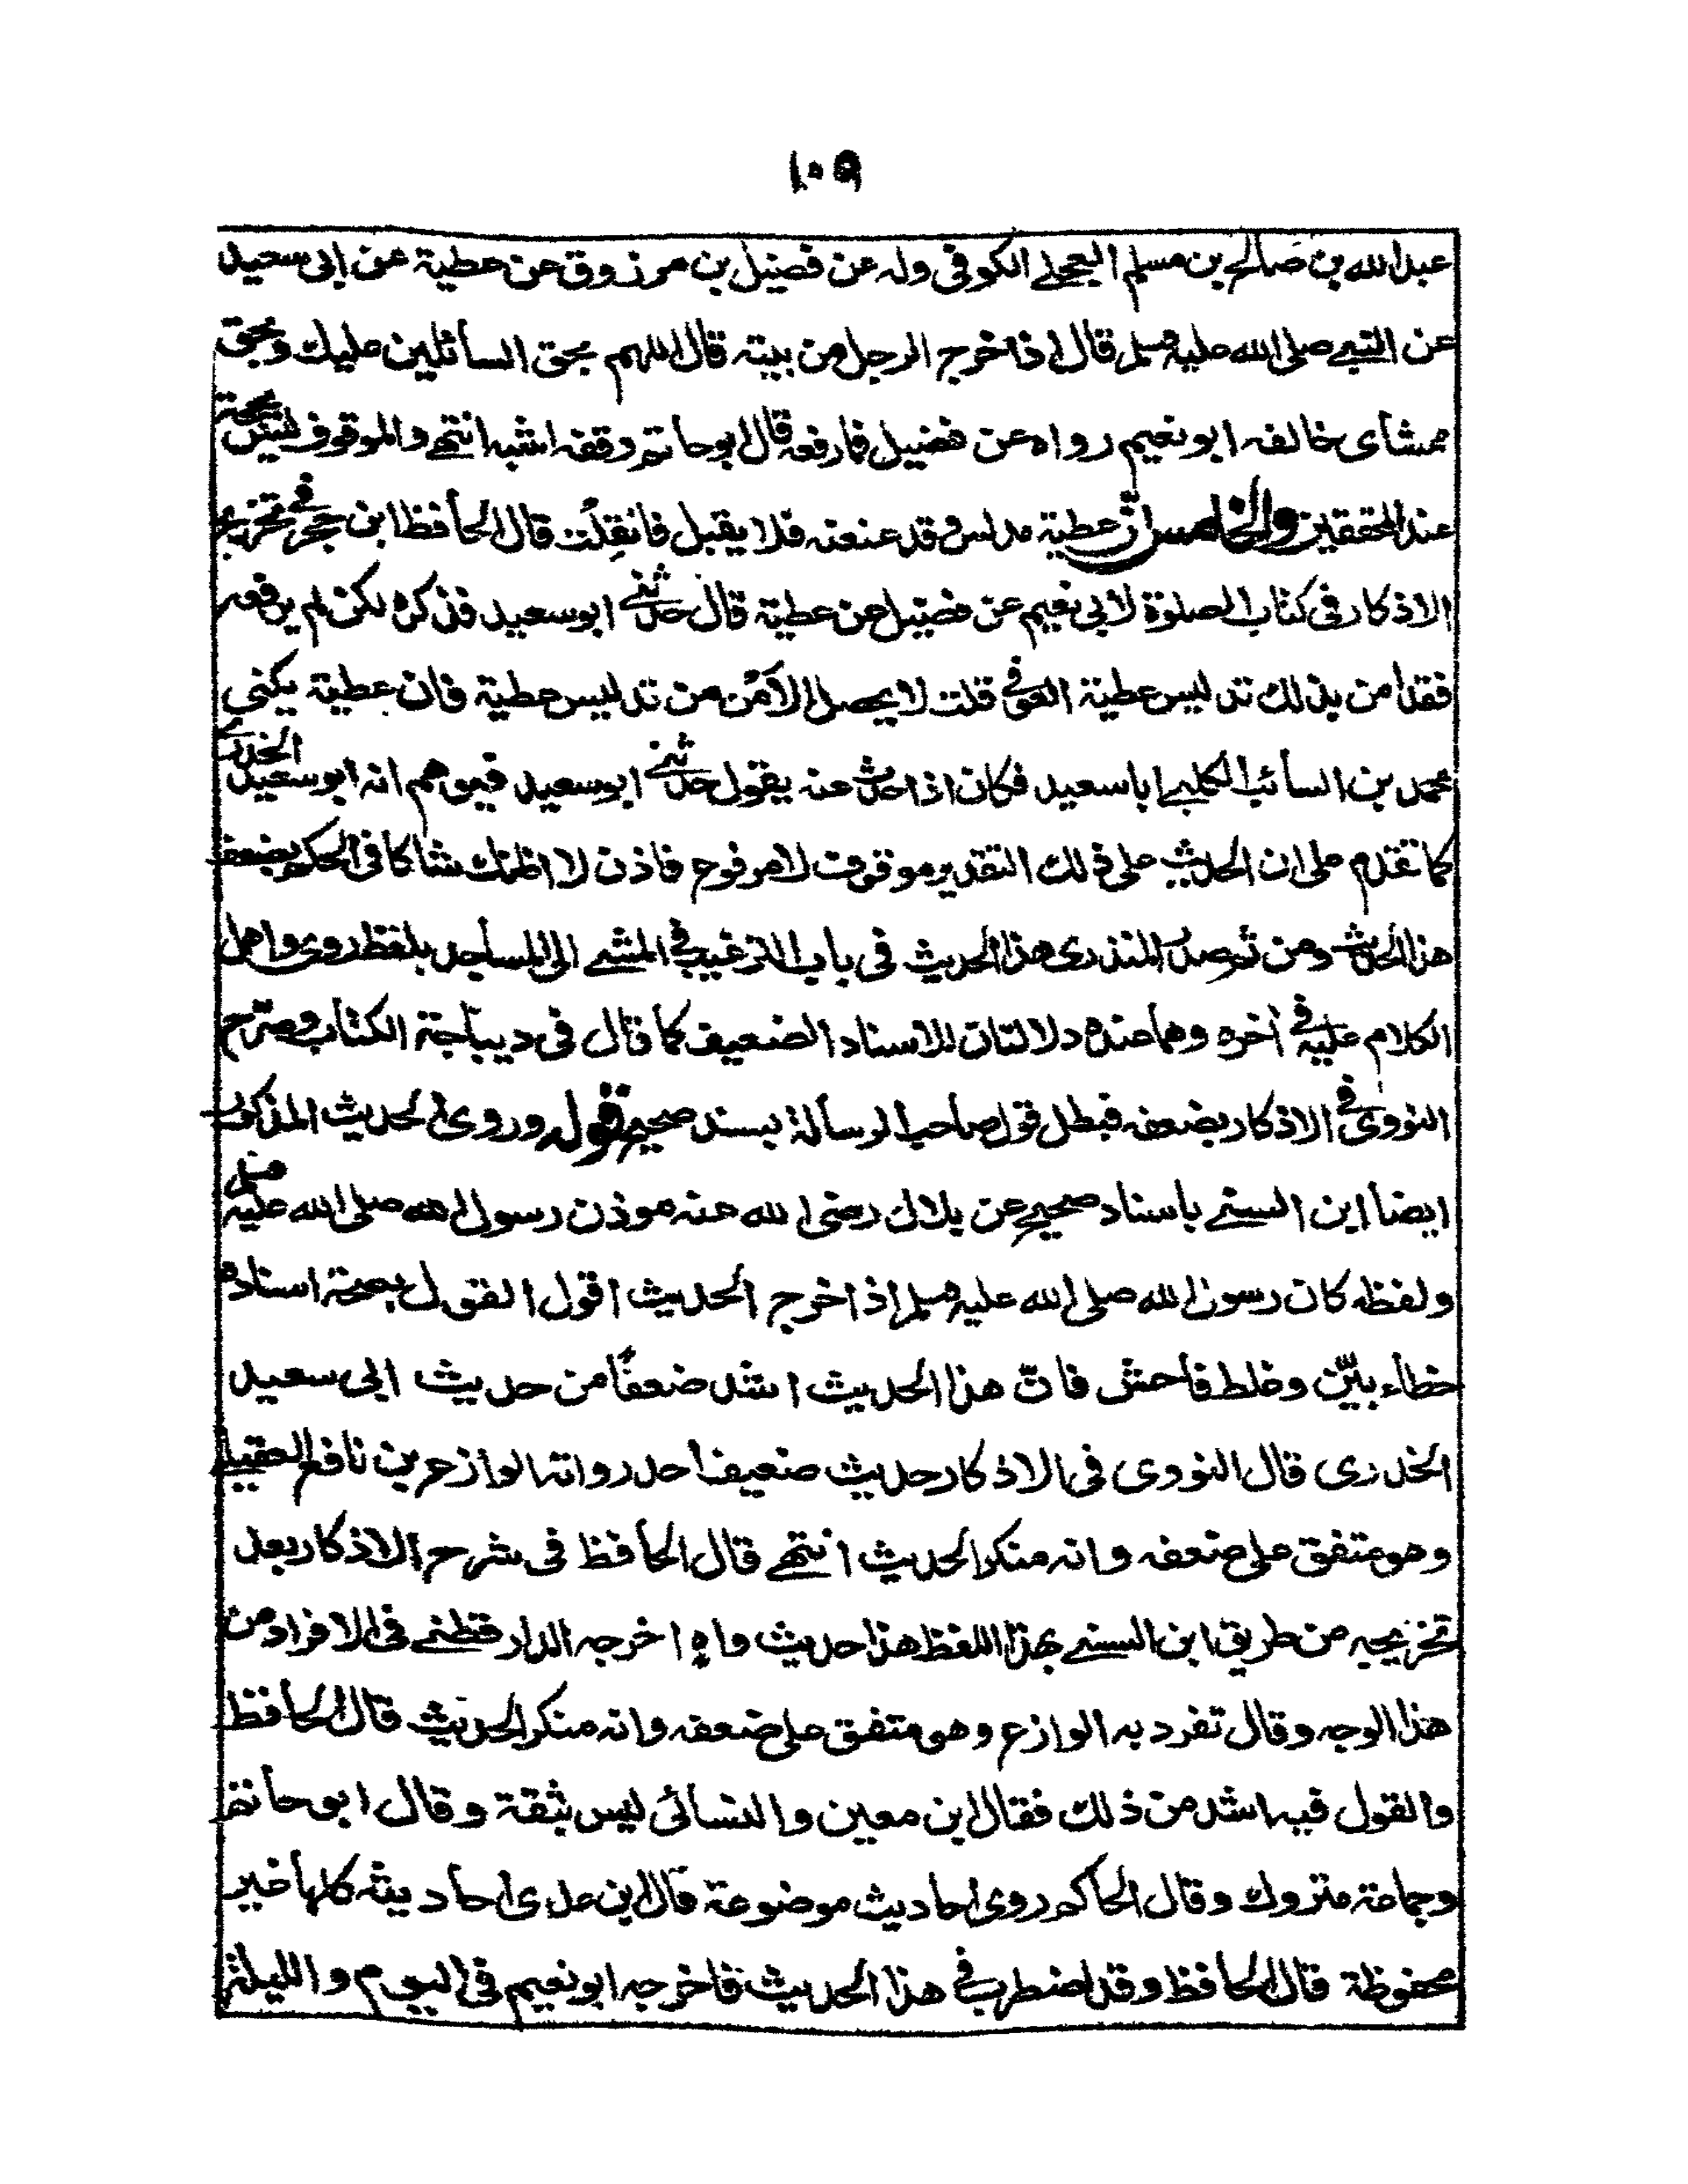 ١٠٩
عبدالله بن صالح بن مسلم العجلے الكوفى وله عن فضيل بن مرزوق عن عطية عن ابى سعيد
عن النبے صلى الله عليه وسلم قال اذا خرج الرجل من بيته قال اللهم بحق السائلين عليك وبحق
ممشاى خالفه ابو نعيم رواه عن فضيل فما رفعه قال ابو حاتم وقفه اشبه انتهے والموقوف ليس بحجة
عند المحققين والخامس ان عطية مدلس وقد عنعنه فلا يقبل فان قلت قال الحافظ ابن حجر فے تخريج
الاذكار فى كتاب الصلوة لابى نعيم عن فضيل عن عطية قال حدثنے ابو سعيد فذكره لكن لم يرفعه
فقد امن بذلك تدليس عطية العوفے قلت لا يحصل الامن من تدليس عطية فان عطية يكنى
محمد بن السائب الكلبے ابا سعيد فكان اذا حدث عنه يقول حدثنے ابو سعيد فيوهم انه ابو سعيد الخدرے
كما تقدم على ان الحديث على ذلك التقدير موقوف لا مرفوع فاذن لا اظنك شاكا فى الحكم بضعف
هذا الحديث ومن ثم صدر المنذرى هذا الحديث فى باب الترغيب فے المشے الى المساجد بلفظ روى واهمل
الكلام عليه فے اخره وهما عنده دلالتان للاسناد الضعيف كما قال فى ديباجة الكتاب وصرح
النووى فے الاذكار بضعفه فبطل قول صاحب الرسالة بسند صحيح قوله وروى الحديث المذكور
ايضا ابن السنے باسناد صحيح عن بلال رضى الله عنه موذن رسول الله صلى الله عليه وسلم
ولفظه كان رسول الله صلى الله عليه وسلم اذا خرج الحديث اقول القول بصحة اسناده
خطاء بيّن وغلط فاحش فانّ هذا الحديث اشد ضعفًا من حديث ابى سعيد
الخدرى قال النووى فى الاذكار حديث ضعيف احد رواته الوازع بن نافع العقيلے
وهو متفق على ضعفه وانه منكر الحديث انتهے قال الحافظ فى شرح الاذكار بعد
تخريجه من طريق ابن السنے بهذا اللفظ هذا حديث واهٍ اخرجه الدارقطنے فى الافراد من
هذا الوجه وقال تفرد به الوازع وهو متفق على ضعفه وانه منكر الحديث قال الحافظ
والقول فيه اشد من ذلك فقال ابن معين والنسائى ليس بثقة وقال ابو حاتم
وجماعة متروك وقال الحاكم روى احاديث موضوعة قال ابن عدى احاديثه كلها غير
محفوظة قال الحافظ وقد اضطرب فے هذا الحديث فاخرجه ابو نعيم فى اليوم والليلة